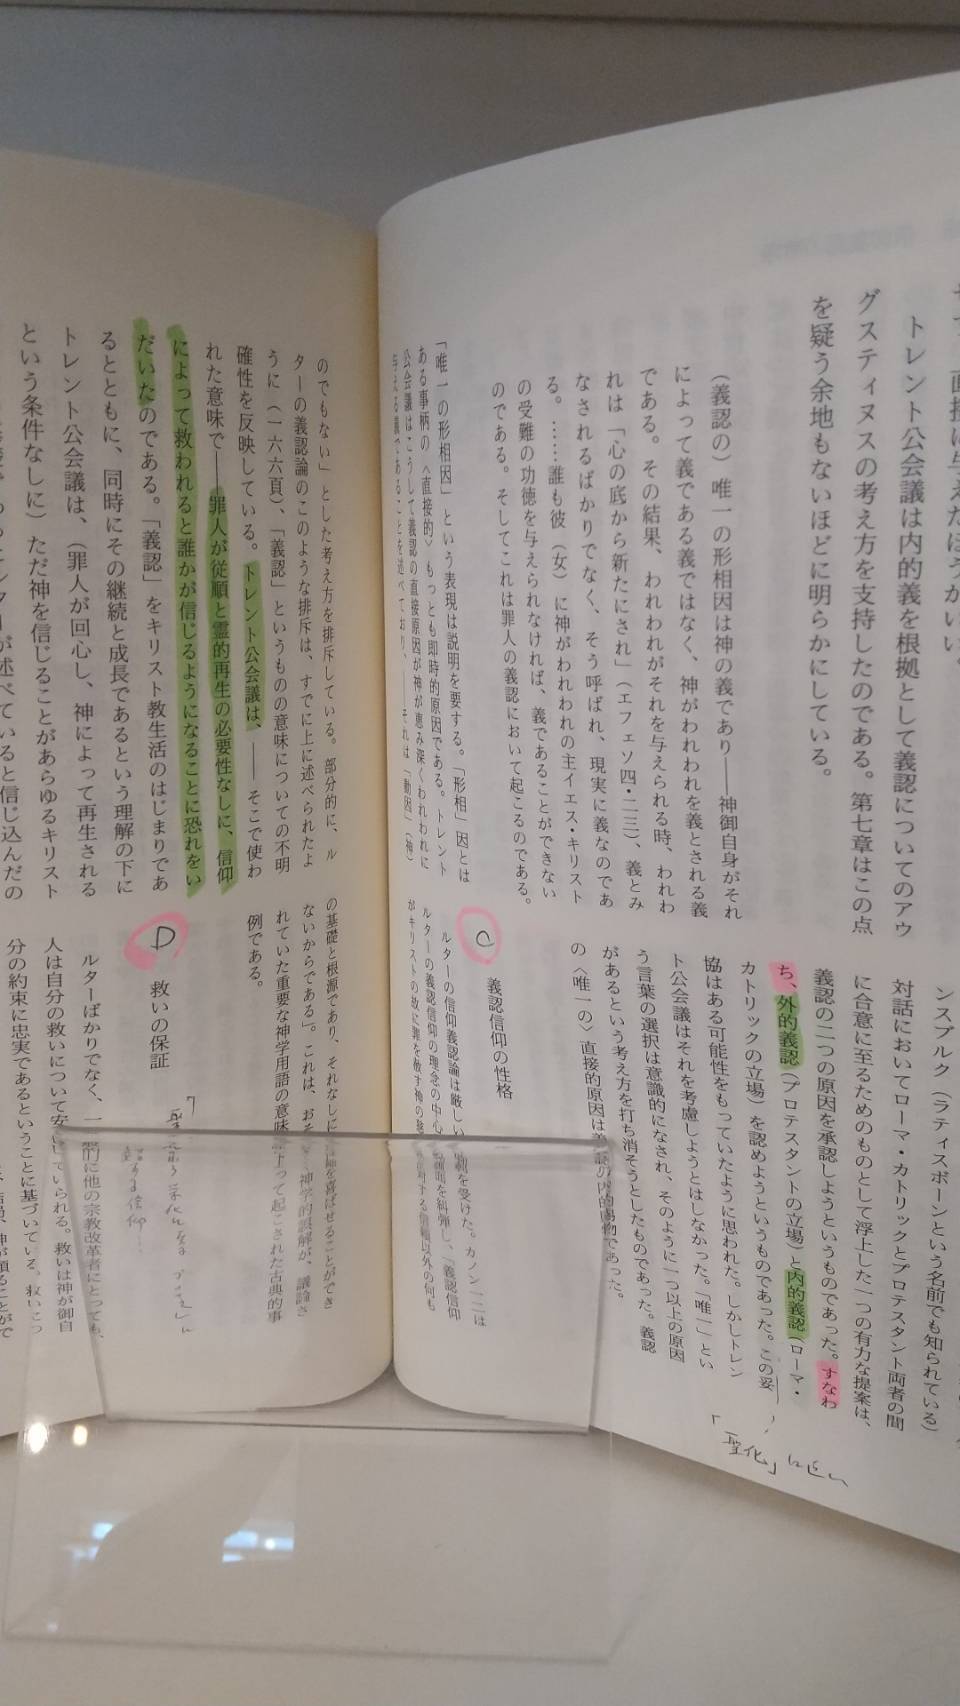 トレント公会議は内的義を根拠として義認についてのアウ
グスティヌスの考え方を支持したのである。第七章はこの点
を疑う余地もないほどに明らかにしている。
（義認の）唯一の形相因は神の義であり――神御自身がそれ
によって義である義ではなく、神がわれわれを義とされる義
である。その結果、われわれがそれを与えられる時、われわ
れは「心の底から新たにされ」（エフェソ四・二三）、義とみ
なされるばかりでなく、そう呼ばれ、現実に義なのであ
る。……誰も彼（女）に神がわれわれの主イエス・キリスト
の受難の功徳を与えられなければ、義であることができない
のである。そしてこれは罪人の義認において起こるのである。
「唯一の形相因」という表現は説明を要する。「形相」因とは
ある事柄の〈直接的〉もっとも即時的原因である。トレント
公会議はこうして義認の直接原因が神が恵み深くわれわれに
与える義であることを述べており、――それは「動因」（神）
ンスブルク（ラティスボーンという名前でも知られている）
対話においてローマ・カトリックとプロテスタント両者の間
に合意に至るためのものとして浮上した一つの有力な提案は、
義認の二つの原因を承認しようというものであった。すなわ
ち、外的義認（プロテスタントの立場）と内的義認（ローマ・
カトリックの立場）を認めようというものであった。この妥
協はある可能性をもっていたように思われた。しかしトレン
ト公会議はそれを考慮しようとはしなかった。「唯一」とい
う言葉の選択は意識的になされ、そのように一つ以上の原因
があるという考え方を打ち消そうとしたものであった。義認
の〈唯一の〉直接的原因は義認の内的賜物であった。
「聖化」に近い
C
義認信仰の性格
ルターの信仰義認論は厳しい を受けた。カノン一二は
ルターの義認信仰の理念の中心 を糾弾し、「義認信仰
がキリストの故に罪を赦す神の する信頼以外の何も
のでもない」とした考え方を排斥している。部分的に、ル
ターの義認論のこのような排斥は、すでに上に述べられたよ
うに（一六六頁）、「義認」というものの意味についての不明
確性を反映している。トレント公会議は、――そこで使わ
れた意味で――罪人が従順と霊的再生の必要性なしに、信仰
によって救われると誰かが信じるようになることに恐れをい
だいたのである。「義認」をキリスト教生活のはじまりであ
るとともに、同時にその継続と成長であるという理解の下に
トレント公会議は、（罪人が回心し、神によって再生される
という条件なしに）ただ神を信じることがあらゆるキリスト
述べていると信じ込んだの
の基礎と根源であり、それなしに を喜ばせることができ
ないからである」。これは、おそ 神学的誤解が、議論さ
れていた重要な神学用語の意味 よって起こされた古典的事
例である。
D
救いの保証
ルターばかりでなく、一般的に他の宗教改革者にとっても、
人は自分の救いについて安 していられる。救いは神が御自
分の約束に忠実であるということに基づいている。救いにつ